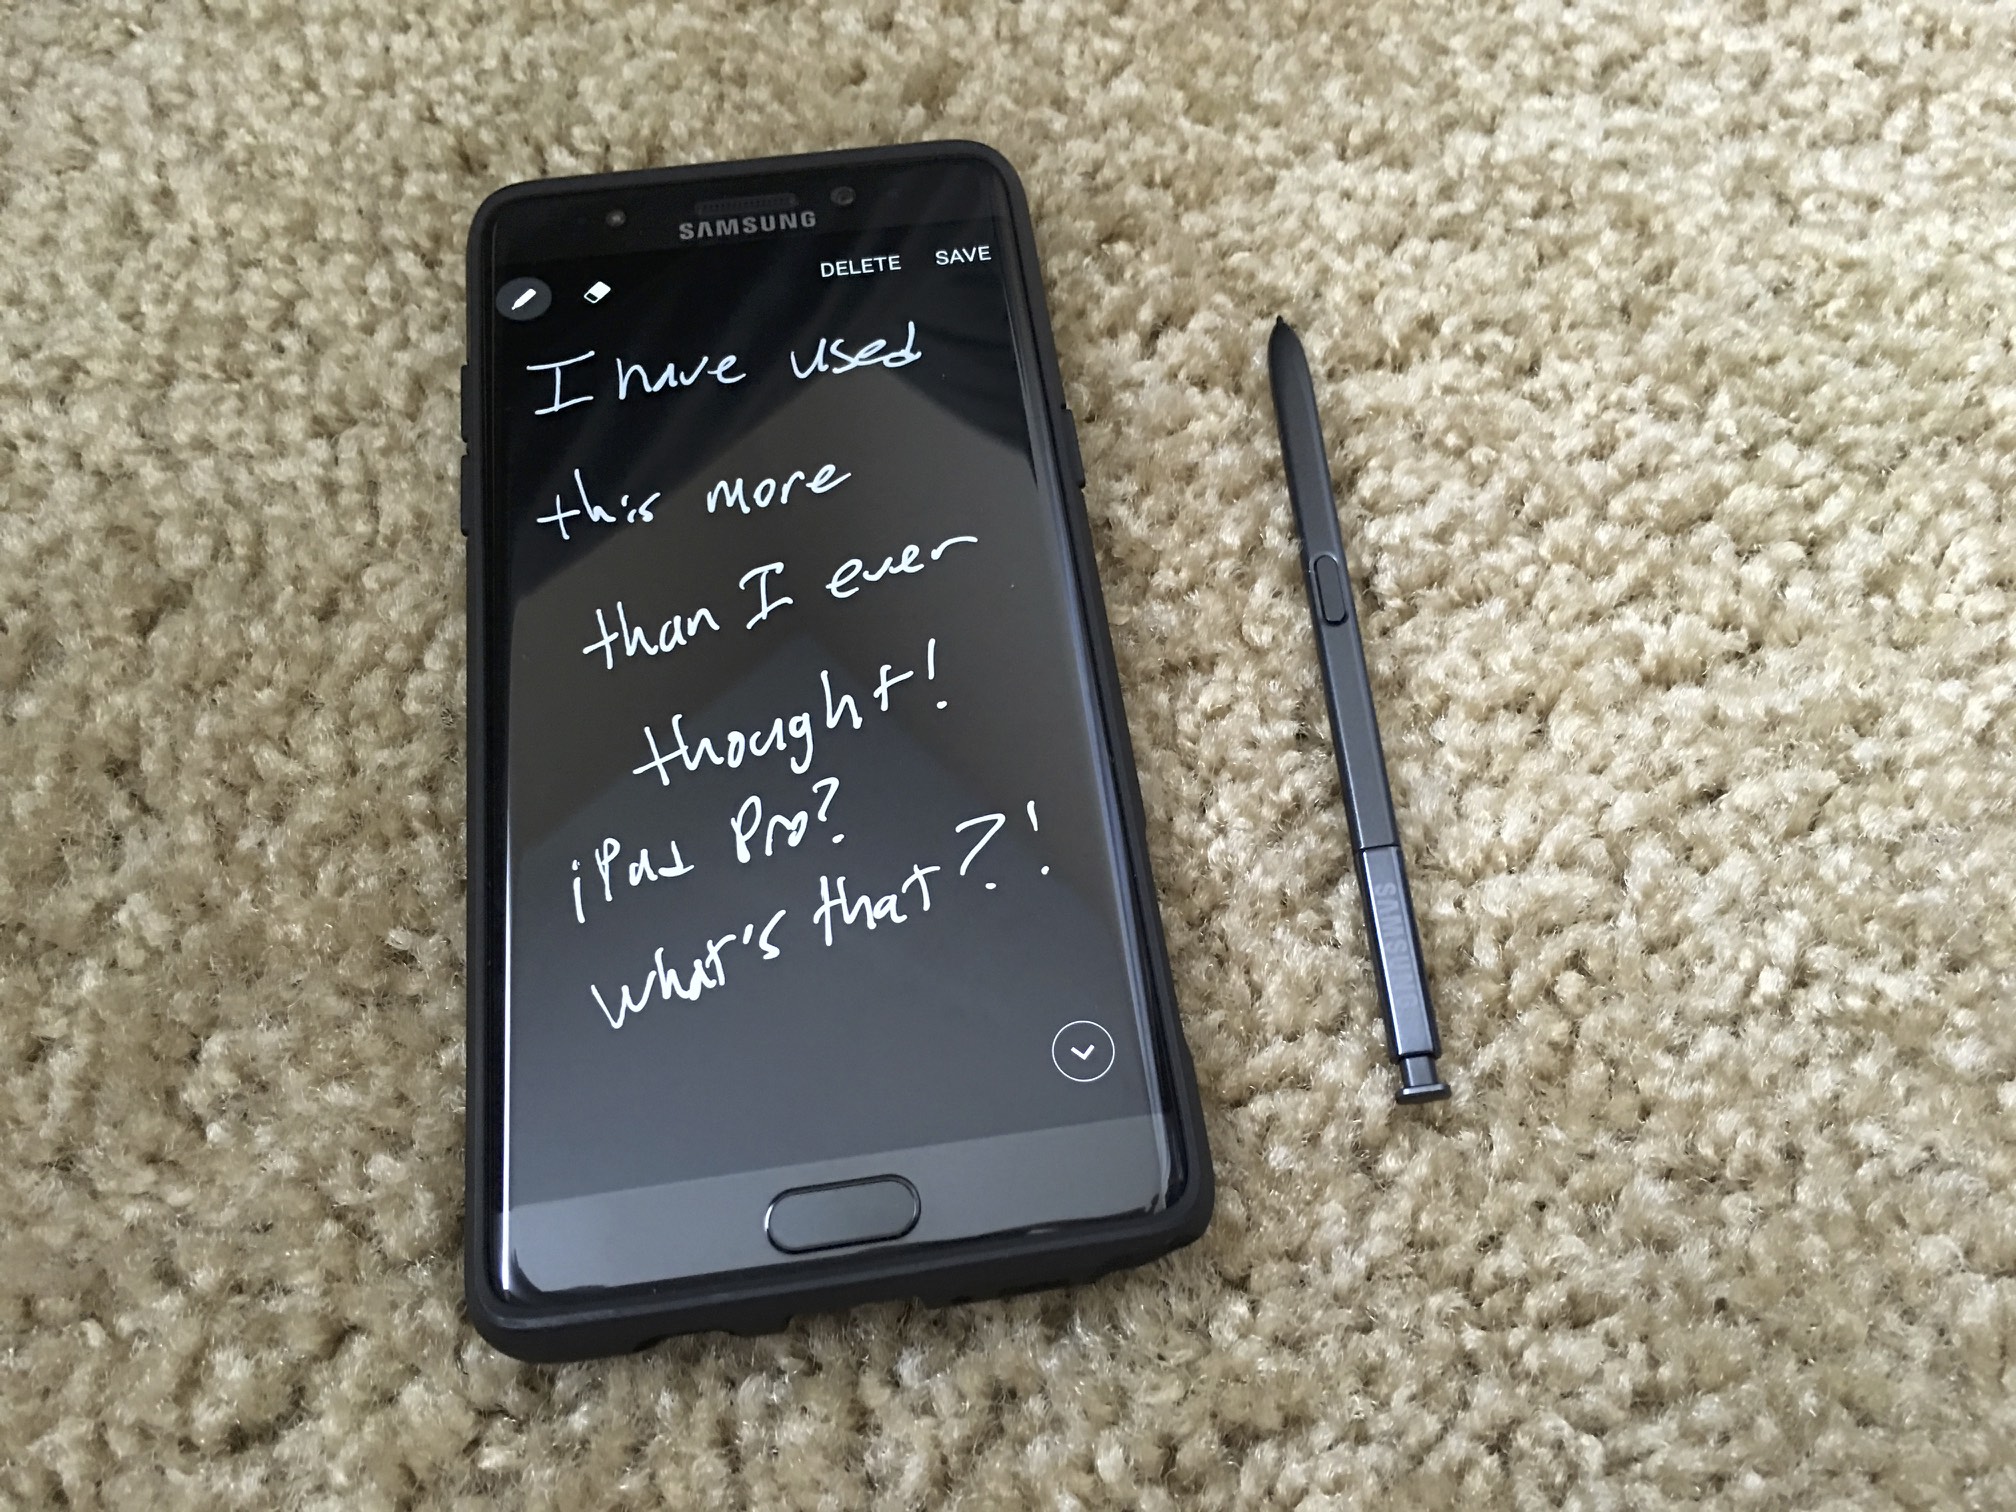 SAMSUNG
DELETE SAVE
I have used
this more
than I ever
thought!
iPad Pro?
what's that?!
SAMSUNG